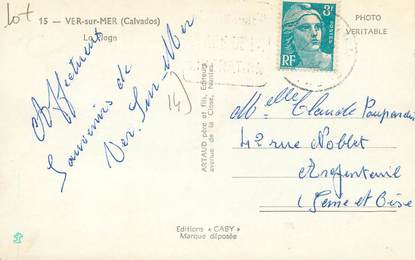 Lot
15 — VER-sur-MER (Calvados)
La Plage
PHOTO
VERITABLE
3F
POSTES
RF
Affectueux
Souvenirs de
Ver-Sur-Mer
14
ARTAUD père et fils, Editeurs
avenue de la Close, Nantes.
Melle Claude
42 rue Noblet
Argenteuil
(Seine et Oise
Editions « GABY »
Marque déposée